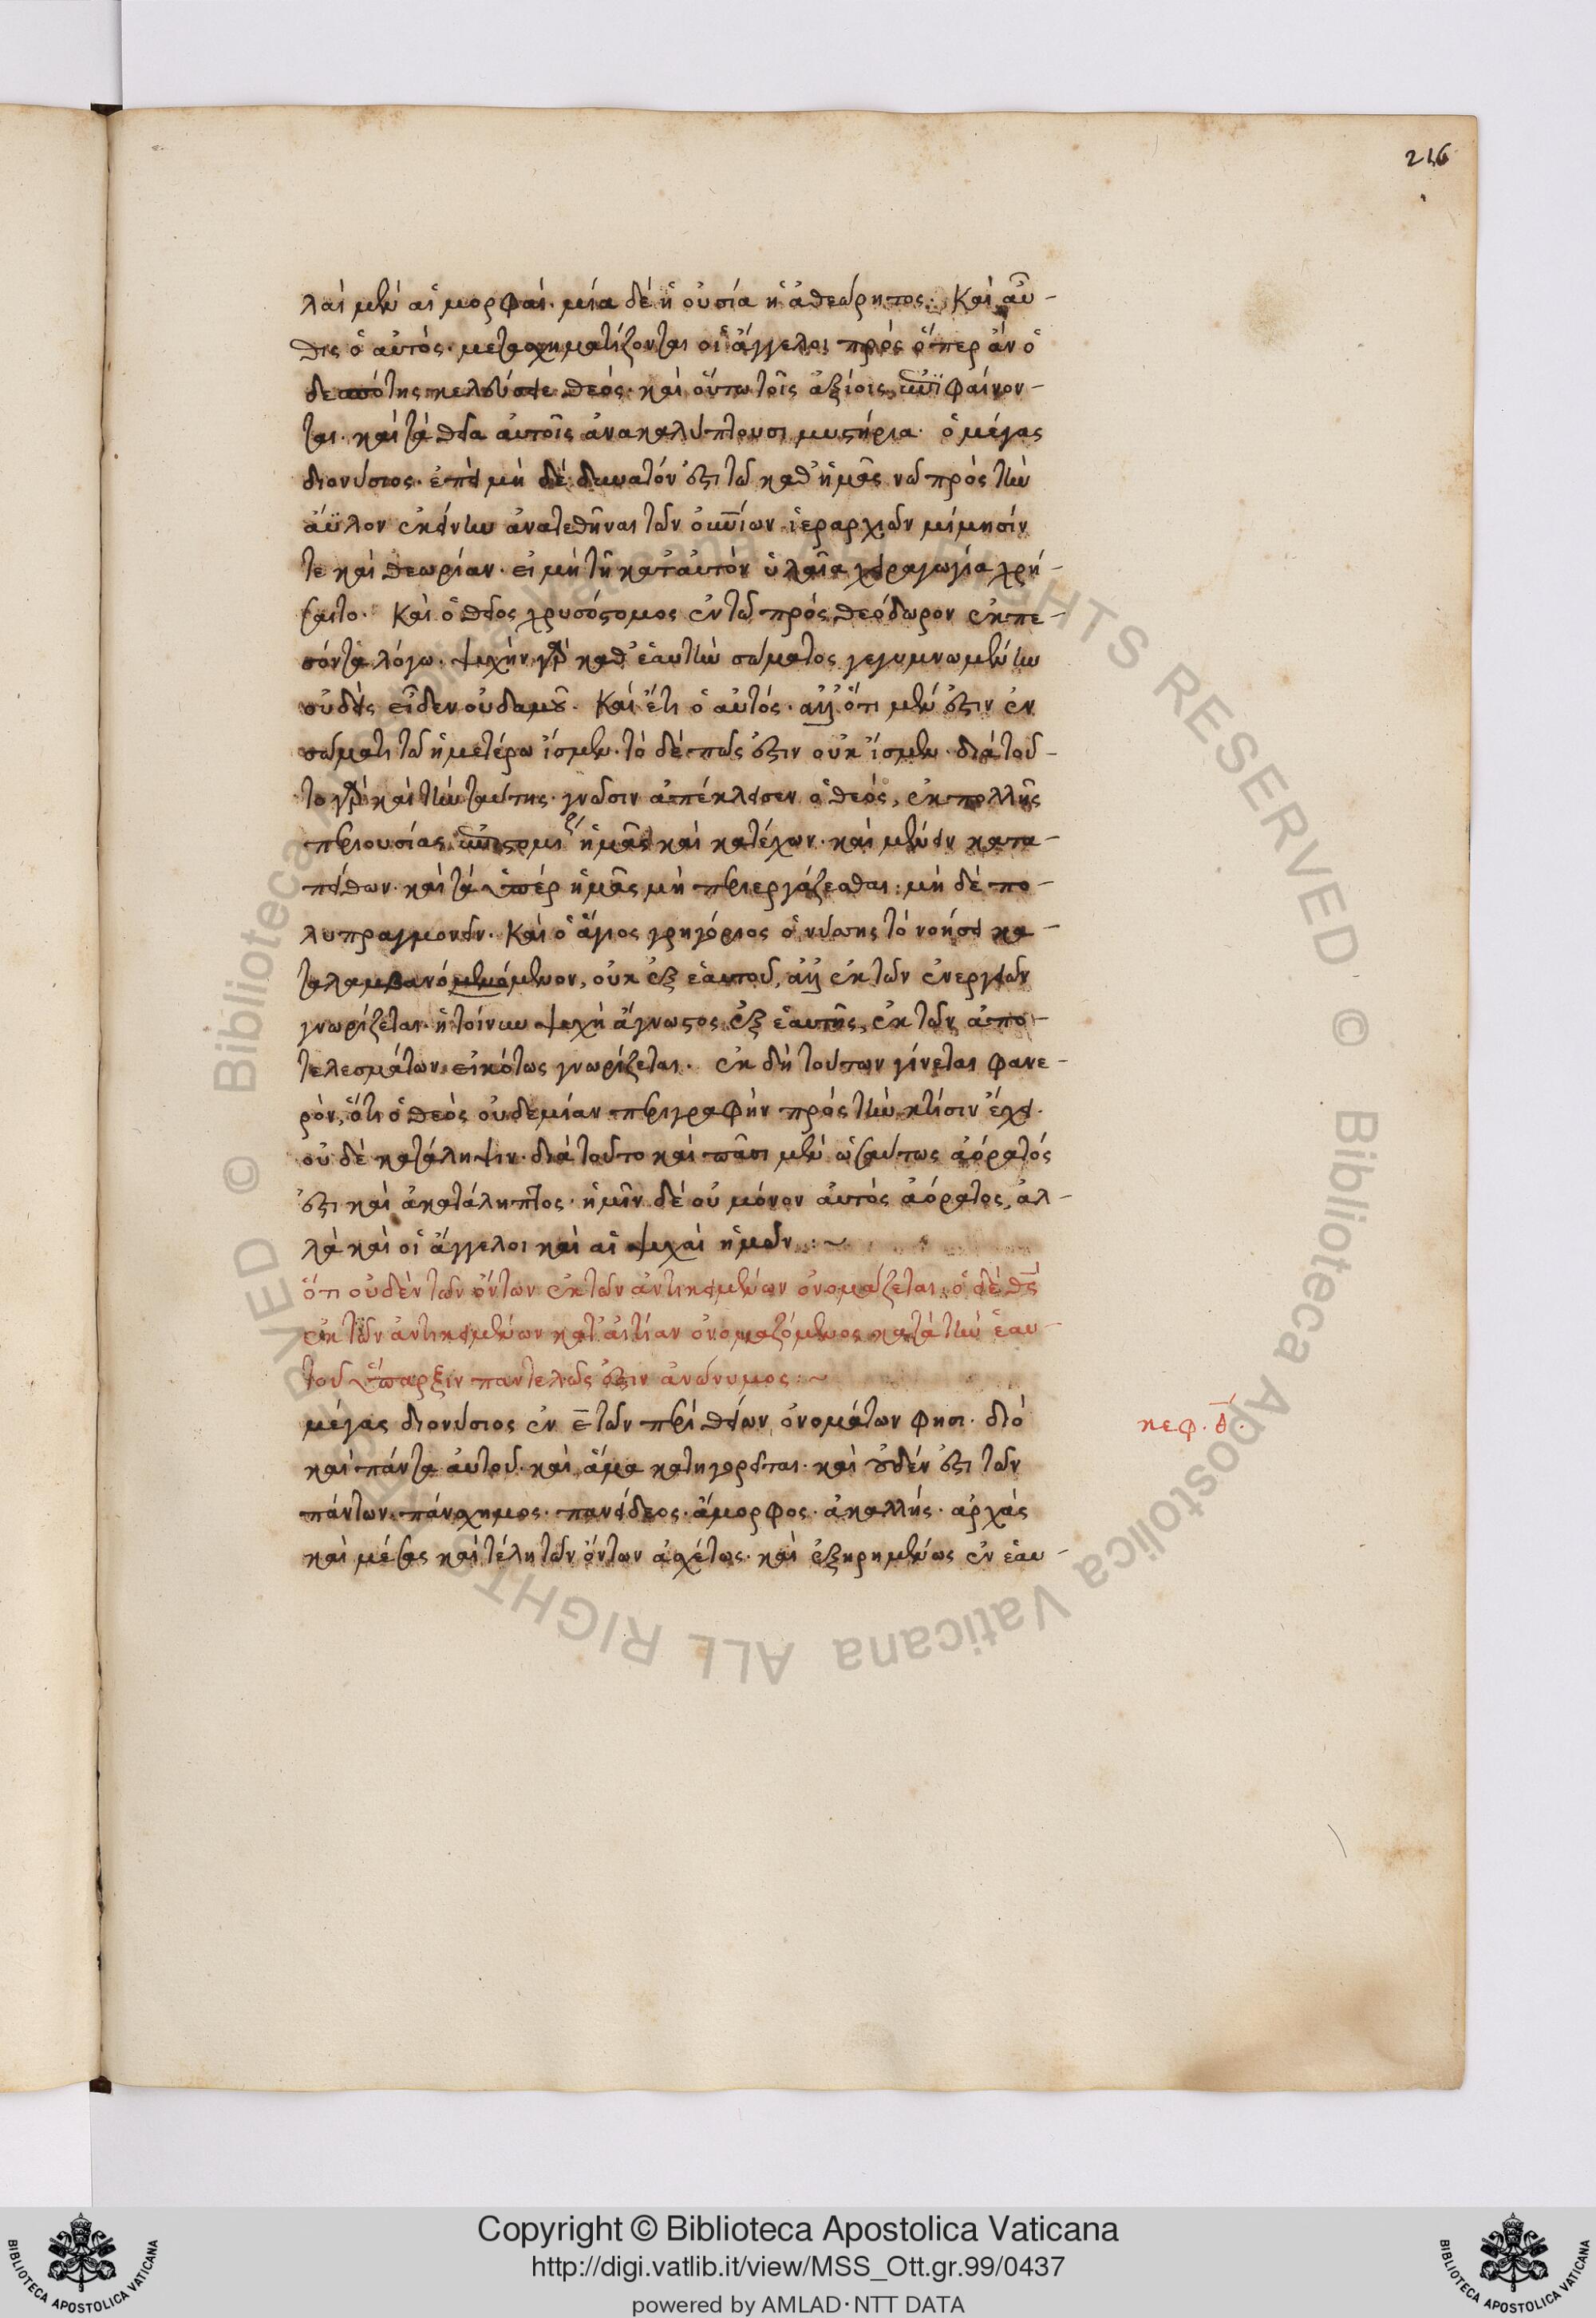 216
λαὶ μὲν αἱ μορφαί· μία δὲ ἡ οὐσία ἡ ἀθεώρητος· Καὶ αὖ-
θις ὁ αὐτός· μετασχηματίζονται οἱ ἄγγελοι πρὸς ὅπερ ἂν ὁ
δεσπότης κελεύσειε θεός· καὶ οὕτω τοῖς ἀξίοις ἐπιφαίνον-
ται· καὶ τὰ θεῖα αὐτοῖς ἀνακαλύπτουσι μυστήρια· ὁ μέγας
διονύσιος· ἐπεὶ μὴ δὲ δυνατόν ἐστι τῶ καθ' ἡμᾶς νῶ πρὸς τὴν
ἄϋλον ἐκείνην ἀνατεθῆναι τῶν οὐνίων ἱεραρχιῶν μίμησίν
τε καὶ θεωρίαν· εἰ μὴ τῆ κατ' αὐτὸν ὑλαῖα χειραγωγία χρή-
σαιτο· Καὶ ὁ θεῖος χρυσόστομος ἐν τῶ πρὸς θεόδωρον ἐκπε-
σόντα λόγω· ψυχὴν γὰρ καθ' ἑαυτὴν σώματος γεγυμνωμένην
οὐδεὶς εἶδεν οὐδαμοῦ· Καὶ ἔτι ὁ αὐτός· ἀλλ' ὅτι μέν ἐστιν ἐν
σώματι τῶ ἡμετέρω ἴσμεν· τὸ δὲ πῶς ἐστιν οὐκ ἴσμεν· διὰ τοῦ-
το γὰρ καὶ τὴν ταύτης γνῶσιν ἀπέκλεισεν ὁ θεός, ἐκ πολλῆς
περιουσίας ἐπιστομίζ ἡμᾶς καὶ κατέχων· καὶ μένειν κατα-
πείθων· καὶ τὰ ὑπὲρ ἡμᾶς μὴ περιεργάζεσθαι· μὴ δὲ πο-
λυπραγμονεῖν· Καὶ ὁ ἅγιος γρηγόριος ὁ νύσης τὸ νοήσει κα-
ταλαμβανόμενόμενον, οὐκ ἐξ ἑαυτοῦ, ἀλλ' ἐκ τῶν ἐνεργειῶν
γνωρίζεται· ἡ τοίνυν ψυχὴ ἄγνωστος ἐξ ἑαυτῆς, ἐκ τῶν ἀπο-
τελεσμάτων εἰκότως γνωρίζεται· ἐκ δὴ τούτων γίνεται φανε-
ρὸν, ὅτι ὁ θεὸς οὐδεμίαν περιγραφὴν πρὸς τὴν κτίσιν ἔχει·
οὐ δὲ κατάληψιν· διὰ τοῦτο καὶ πᾶσι μὲν ὡσαύτως ἀόρατός
ἐστι καὶ ἀκατάληπτος· ἡμῖν δὲ οὐ μόνον αὐτὸς ἀόρατος, ἀλ-
λὰ καὶ οἱ ἄγγελοι καὶ αἱ ψυχαὶ ἡμῶν :~
ὅτι οὐδὲν τῶν ὄντων ἐκ τῶν ἀντικειμένων ὀνομάζεται· ὁ δὲ θς
ἐκ τῶν ἀντικειμένων κατ' αἰτίαν ὀνομαζόμενος κατὰ τὴν ἑαυ-
τοῦ ὕπαρξιν παντελῶς ἐστιν ἀνώνυμος :~
μέγας διονύσιος ἐν ε τῶν περὶ θείων ὀνομάτων φησι· διὸ
κεφ. δ.
καὶ πάντα αὐτοῦ· καὶ ἅμα κατηγορεῖται· καὶ οὐδέν ἐστι τῶν
πάντων· πάνσχημος· πανείδεος· ἄμορφος· ἀκαλλής· ἀρχὰς
καὶ μέσας καὶ τέλη τῶν ὄντων ἀσχέτως· καὶ ἐξηρημένως ἐν ἑαυ-
Copyright © Biblioteca Apostolica Vaticana
http://digi.vatlib.it/view/MSS_Ott.gr.99/0437
powered by AMLAD·NTT DATA